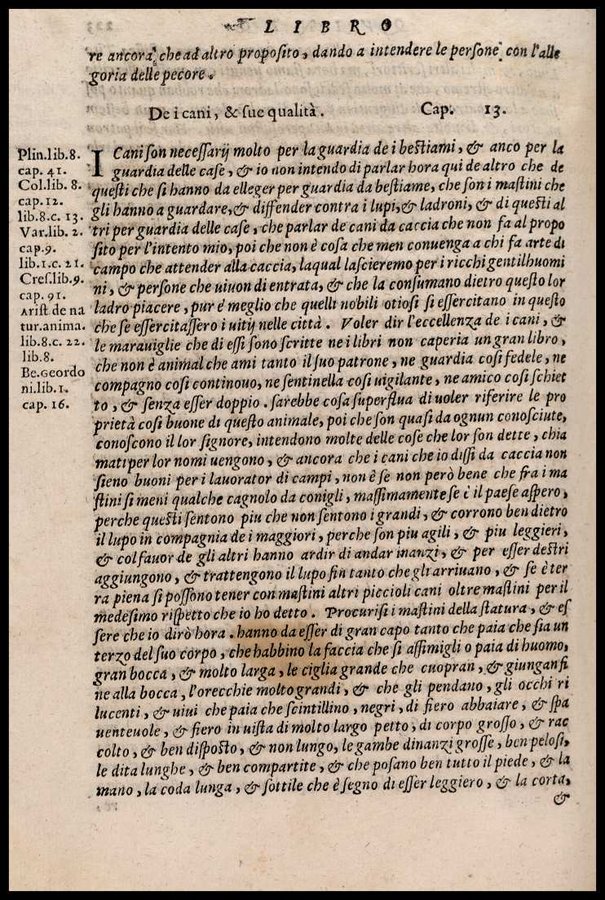 LIBRO
re ancora, che ad altro proposito, dando a intendere le persone, con l'alle
goria delle pecore.
De i cani, & sue qualità. Cap. 13.
Plin.lib.8.
cap. 41.
Col.lib. 8.
cap. 12.
lib.8.c. 13.
Var.lib. 2.
cap.9.
lib.1.c. 21.
Cres.lib.9.
cap. 91.
Arist de na
tur.anima.
lib.8.c. 22.
lib.8.
Be.Geordo
ni.lib.1.
cap. 16.
I Cani son necessarij molto per la guardia de i bestiami, & anco per la
guardia delle case, & io non intendo di parlar hora qui de altro che de
questi che si hanno da elleger per guardia da bestiame, che son i mastini che
gli hanno a guardare, & diffender contra i lupi, & ladroni, & di questi al
tri per guardia delle case, che parlar de cani da caccia che non fa al propo
sito per l'intento mio, poi che non è cosa che men conuenga a chi fa arte di
campo che attender alla caccia, laqual lascieremo per i ricchi gentilhuomi
ni, & persone che uiuon di entrata, & che la consumano dietro questo lor
ladro piacere, pur è meglio che quelli nobili otiosi si essercitano in questo
che se essercitassero i uitij nelle città. Voler dir l'eccellenza de i cani, &
le marauiglie che di essi sono scritte ne i libri non caperia un gran libro,
che non è animal che ami tanto il suo patrone, ne guardia cosi fedele, ne
compagno cosi continouo, ne sentinella cosi uigilante, ne amico cosi schiet
to, & senza esser doppio. sarebbe cosa superflua di uoler riferire le pro
prietà cosi buone di questo animale, poi che son quasi da ognun conosciute,
conoscono il lor signore, intendono molte delle cose che lor son dette, chia
mati per lor nomi uengono, & ancora che i cani che io dissi da caccia non
sieno buoni per i lauorator di campi, non è se non però bene che fra i ma
stini si meni qualche cagnolo da conigli, massimamente se è il paese aspero,
perche questi sentono piu che non sentono i grandi, & corrono ben dietro
il lupo in compagnia de i maggiori, perche son piu agili, & piu leggieri,
& col fauor de gli altri hanno ardir di andar inanzi, & per esser destri
aggiungono, & trattengono il lupo fin tanto che gli arriuano, & se è ter
ra piena si possono tener con mastini altri piccioli cani oltre mastini per il
medesimo rispetto che io ho detto. Procurisi i mastini della statura, & es
sere che io dirò hora. hanno da esser di gran capo tanto che paia che sia un
terzo del suo corpo, che habbino la faccia che si assimigli o paia di huomo,
gran bocca, & molto larga, le ciglia grande che cuopran, & giungan fi
ne alla bocca, l'orecchie molto grandi, & che gli pendano, gli occhi ri
lucenti, & uiui che paia che scintillino, negri, di fiero abbaiare, & spa
uenteuole, & fiero in uista di molto largo petto, di corpo grosso, & rac
colto, & ben disposto, & non lungo, le gambe dinanzi grosse, ben pelosi,
le dita lunghe, & ben compartite, & che posano ben tutto il piede, & la
mano, la coda lunga, & sottile che è segno di esser leggiero, & la corta,
&